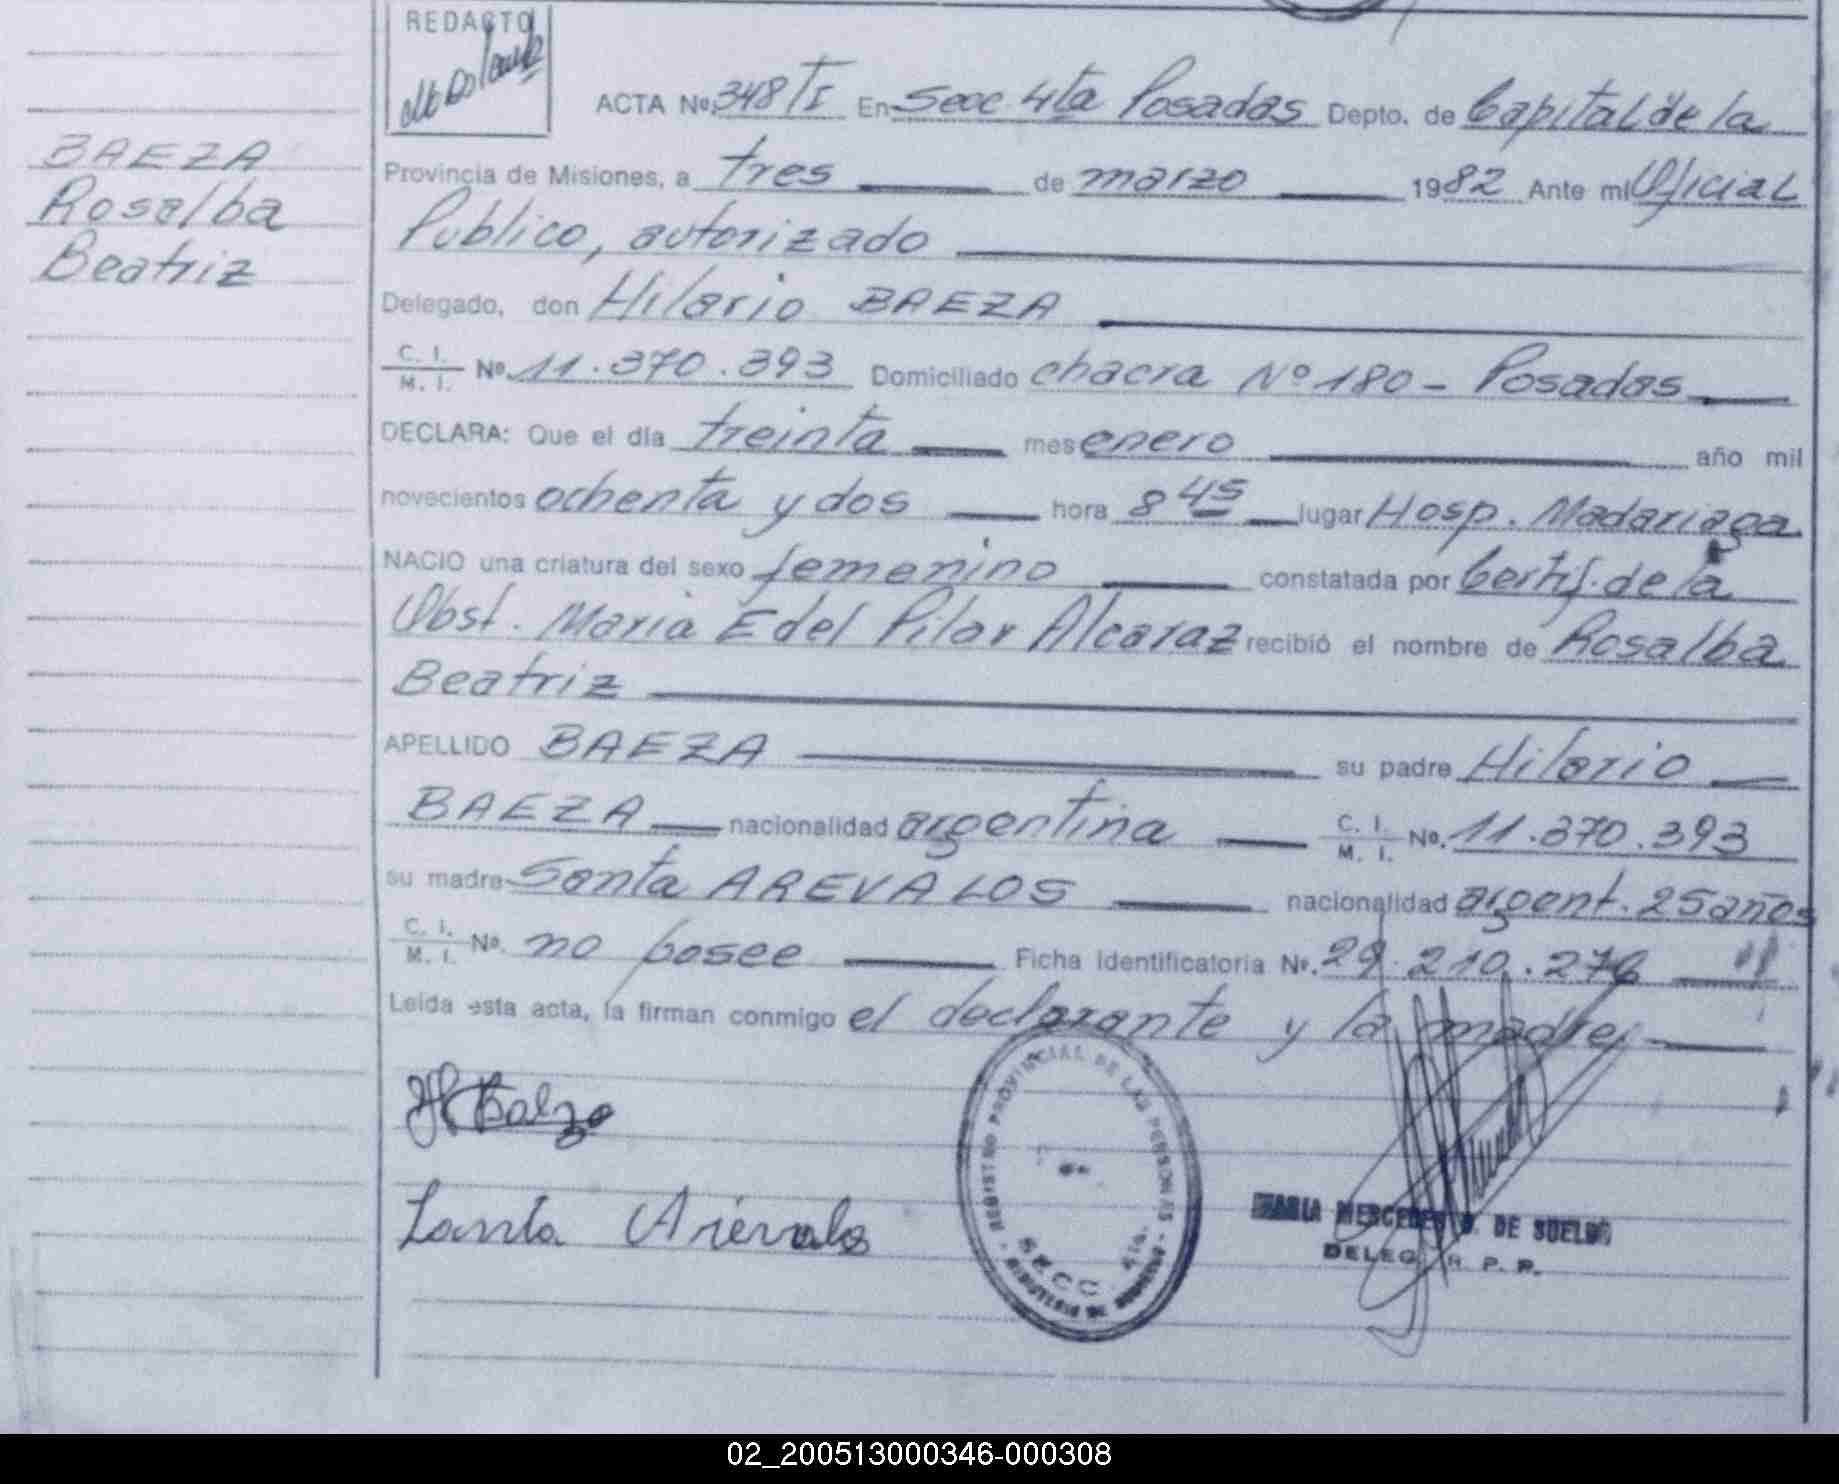 REDACTO
ACTA Nº. 348 TI En Secc. 4ta Posadas Depto. de Capital de la
BAEZA
Rosalba
Beatriz
Provincia de Misiones, a tres de marzo 1982 Ante mi Oficial
Publico, autorizado
Delegado, don Hilario BAEZA
C. I. M. I. Nº. 11.370.393 Domiciliado chacra Nº 180 - Posadas
DECLARA: Que el día treinta mes enero año mil
novecientos ochenta y dos hora 8 45 lugar Hosp. Madariaga
NACIO una criatura del sexo femenino constatada por Certif. de la
Obst. Maria E del Pilar Alcaraz recibió el nombre de Rosalba
Beatriz
APELLIDO BAEZA su padre Hilario
BAEZA nacionalidad argentina C. I. M. I. Nº. 11.370.393
su madre Santa AREVALOS nacionalidad argent. 25 años
C. I. M. I. Nº. no posee Ficha Identificatoria Nº. 29.210.276
Leída esta acta, la firman conmigo el declarante y la madre.
Santa Arévalos
REGISTRO PROVINCIAL DE LAS PERSONAS
SECC. 4ta.
MARIA MERCEDES D. DE SUELDO
DELEG. R. P. P.
02_200513000346-000308